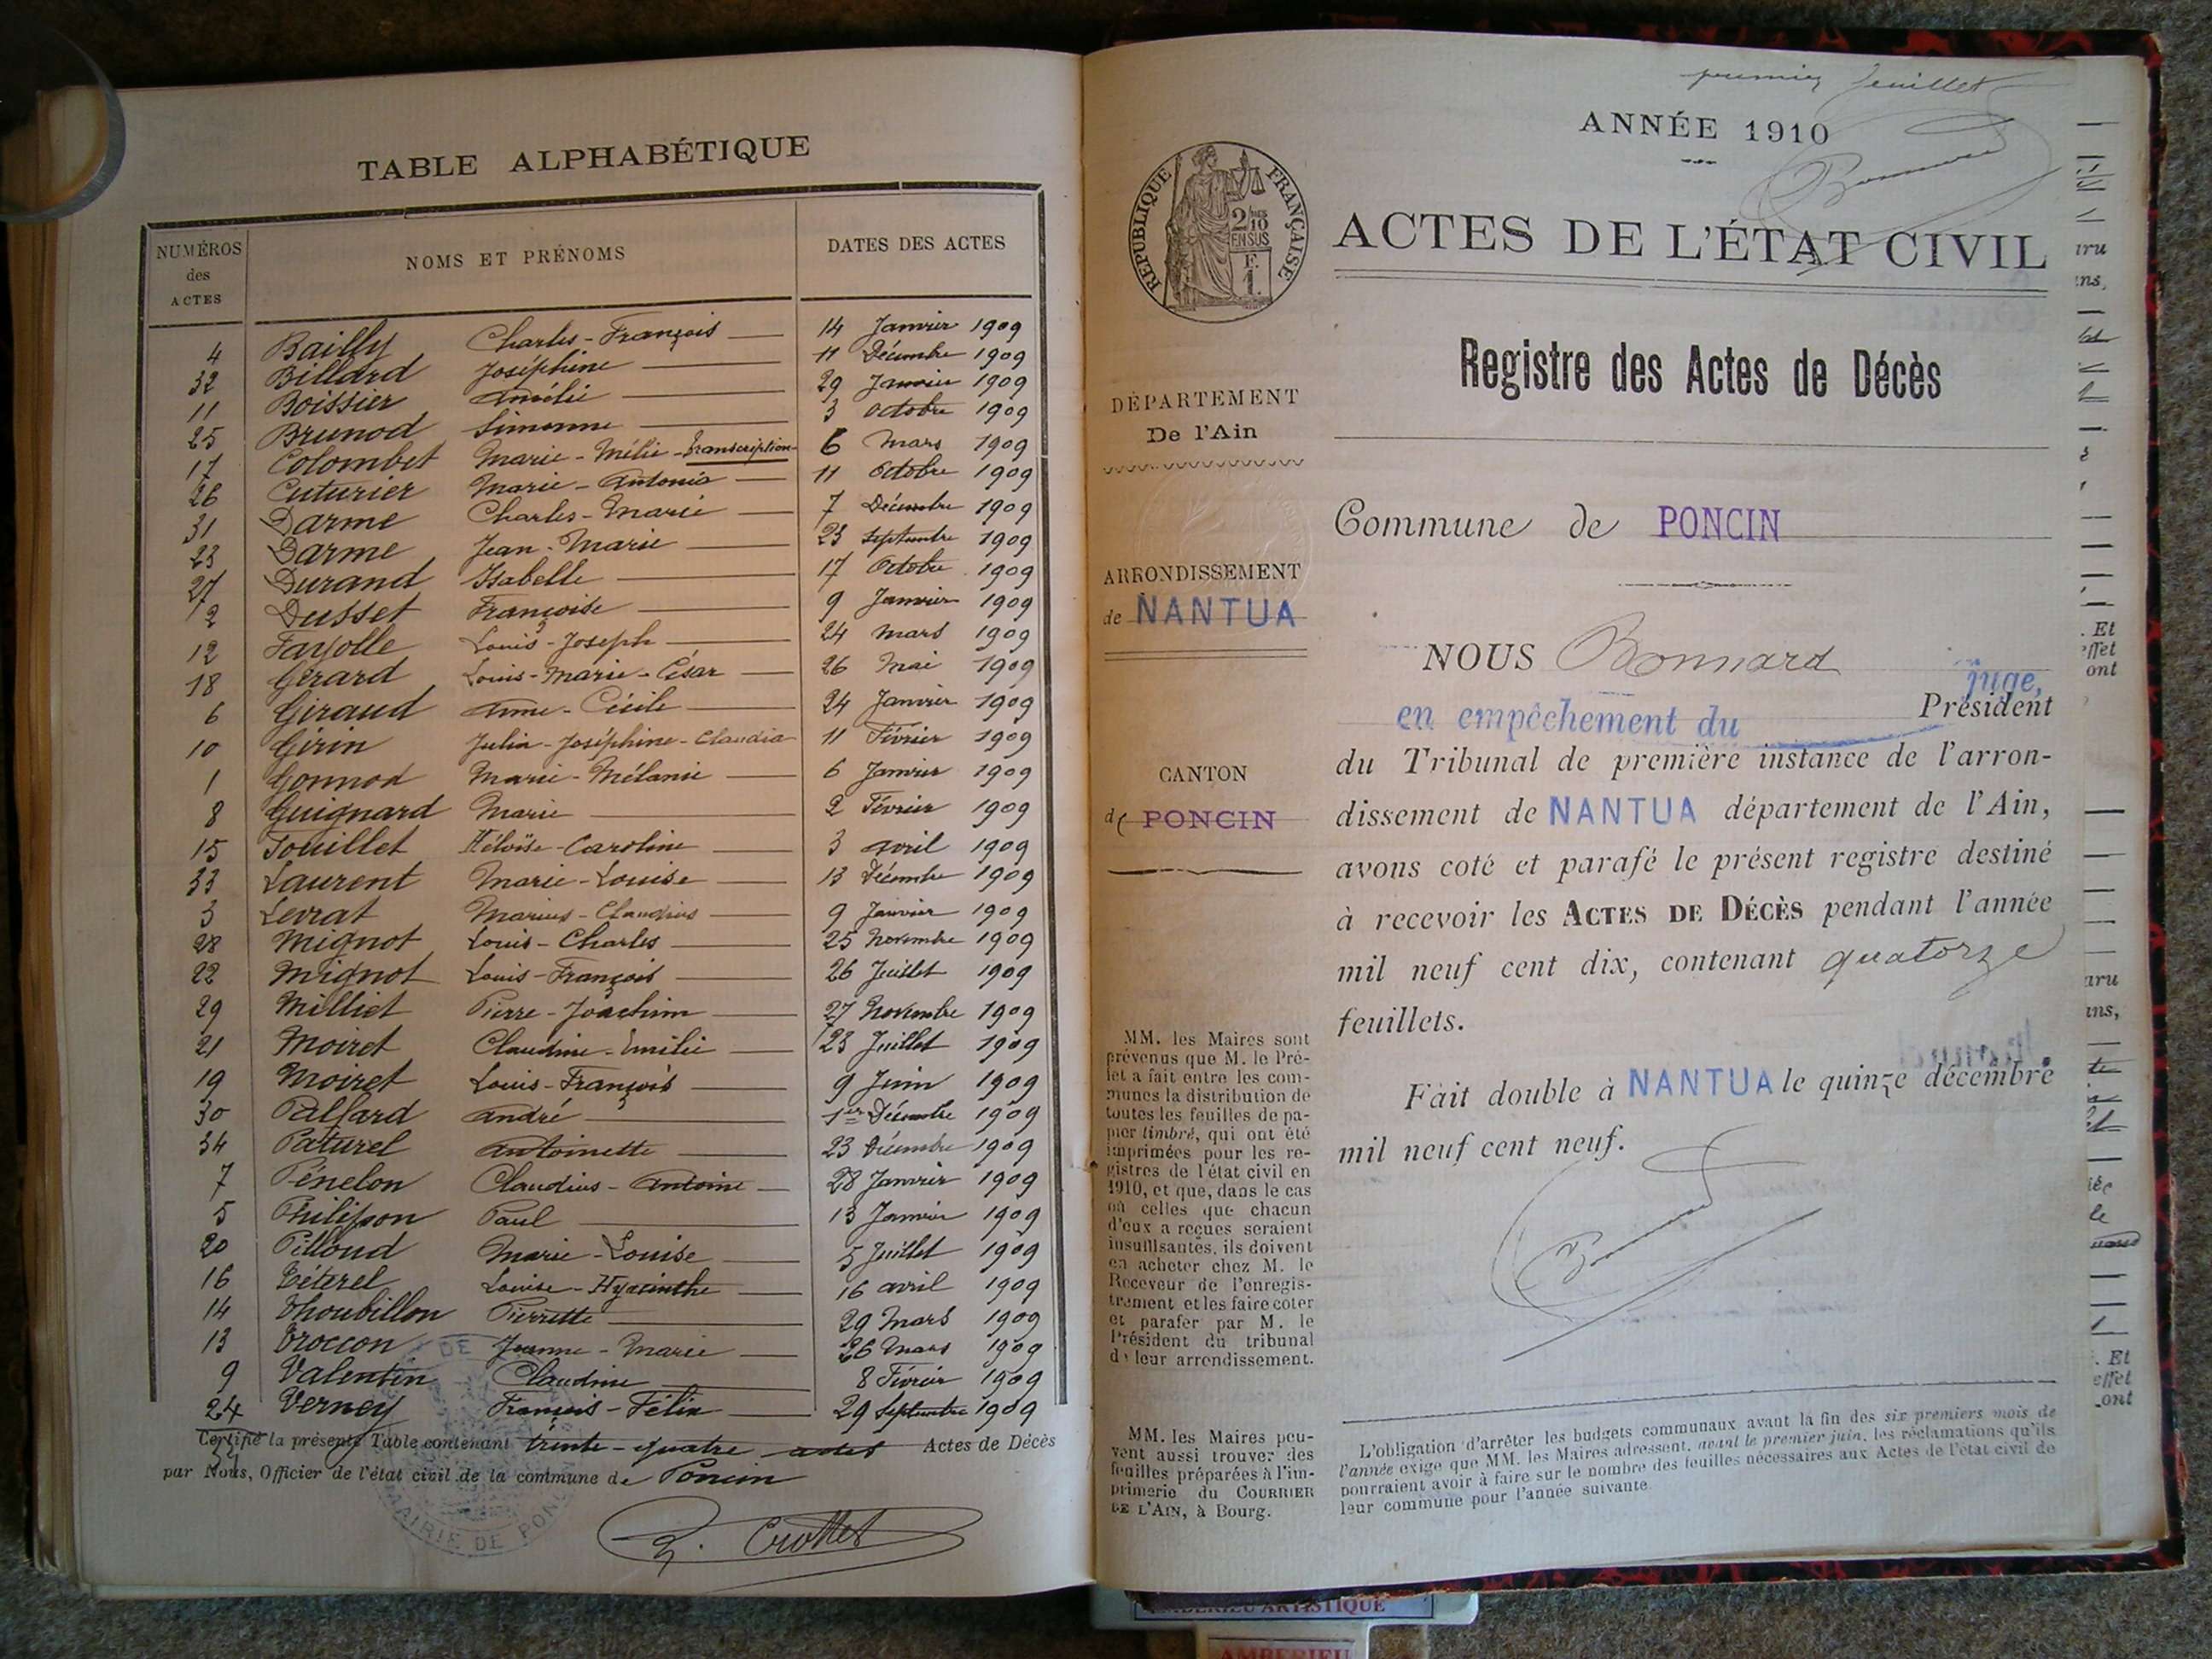 TABLE ALPHABÉTIQUE
NUMÉROS des ACTES NOMS ET PRÉNOMS DATES DES ACTES
4 Bailly Charles-François 14 Janvier 1909
32 Billard Joséphine 11 Décembre 1909
11 Boissier Amélie 29 Janvier 1909
25 Brunod Simonne 3 Octobre 1909
17 Colombet Marie-Mélie-Transcription 6 Mars 1909
26 Cuturier Marie-Antonia 11 Octobre 1909
31 Darme Charles-Marie 7 Décembre 1909
23 Darme Jean-Marie 23 Septembre 1909
27 Durand Isabelle 17 Octobre 1909
2 Dusset Françoise 9 Janvier 1909
12 Fayolle Louis-Joseph 24 Mars 1909
18 Gérard Louis-Marie-César 26 Mai 1909
6 Giraud Anne-Cécile 24 Janvier 1909
10 Girin Julia-Joséphine-Claudia 11 Février 1909
1 Gonnod Marie-Mélanie 6 Janvier 1909
8 Guignard Marie 2 Février 1909
15 Jouillet Héloïse-Caroline 3 avril 1909
33 Laurent Marie-Louise 13 Décembre 1909
3 Levrat Marius-Claudius 9 Janvier 1909
28 Mignot Louis-Charles 25 Novembre 1909
22 Mignot Louis-François 26 Juillet 1909
29 Milliet Pierre-Joachim 27 Novembre 1909
21 Moiret Claudine-Emilie 23 Juillet 1909
19 Moiret Louis-François 9 Juin 1909
30 Pallard André 1er Décembre 1909
34 Paturel Antoinette 23 Décembre 1909
7 Pénelon Claudius-Antoine 28 Janvier 1909
5 Philippon Paul 13 Janvier 1909
20 Pilloud Marie-Louise 5 Juillet 1909
16 Téterel Louise-Hyacinthe 16 avril 1909
14 Thoubillon Pierrette 29 Mars 1909
13 Troccon Jeanne-Marie 26 Mars 1909
9 Valentin Claudine 8 Février 1909
24 Verney François-Félix 29 Septembre 1909
Certifié la présente Table contenant trente-quatre actes Actes de Décès
34
par Nous, Officier de l'état civil de la commune de Poncin
MAIRIE DE PONCIN
Crottet
premier feuillet
ANNÉE 1910
Bonnard
RÉPUBLIQUE FRANÇAISE
2/10 EN SUS
F. 1.
ACTES DE L'ÉTAT CIVIL
Registre des Actes de Décès
DÉPARTEMENT
De l'Ain
Commune de PONCIN
ARRONDISSEMENT
de NANTUA
NOUS Bonnard
juge,
en empêchement du Président
du Tribunal de première instance de l'arron-
CANTON
de PONCIN
dissement de NANTUA département de l'Ain,
avons coté et parafé le présent registre destiné
à recevoir les ACTES DE DÉCÈS pendant l'année
mil neuf cent dix, contenant quatorze
feuillets.
Fait double à NANTUA le quinze décembre
mil neuf cent neuf.
Bonnard
MM. les Maires sont
prévenus que M. le Pré-
fet a fait entre les com-
munes la distribution de
toutes les feuilles de pa-
pier timbré, qui ont été
imprimées pour les re-
gistres de l'état civil en
1910, et que, dans le cas
où celles que chacun
d'eux a reçues seraient
insuffisantes, ils doivent
en acheter chez M. le
Receveur de l'enregis-
trement et les faire coter
et parafer par M. le
Président du tribunal
de leur arrondissement.
MM. les Maires peu-
vent aussi trouver des
feuilles préparées à l'im-
primerie du COURRIER
DE L'AIN, à Bourg.
L'obligation d'arrêter les budgets communaux avant la fin des six premiers mois de
l'année exige que MM. les Maires adressent, avant le premier juin, les réclamations qu'ils
pourraient avoir à faire sur le nombre des feuilles nécessaires aux Actes de l'état civil de
leur commune pour l'année suivante.
AMBERIEU ARTISTIQUE
AMBERIEU